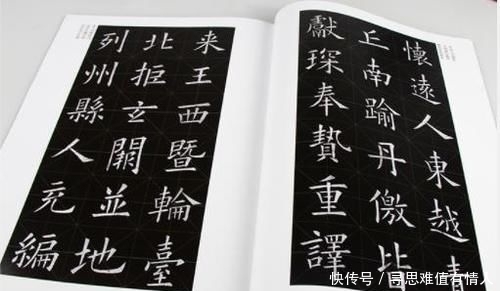 懷遠人東越青
丘南踰丹徼皆
獻琛奉贄重譯
来王西暨輪臺
北拒玄闕並地
列州縣人充編
快传号 / 同思难值有情人